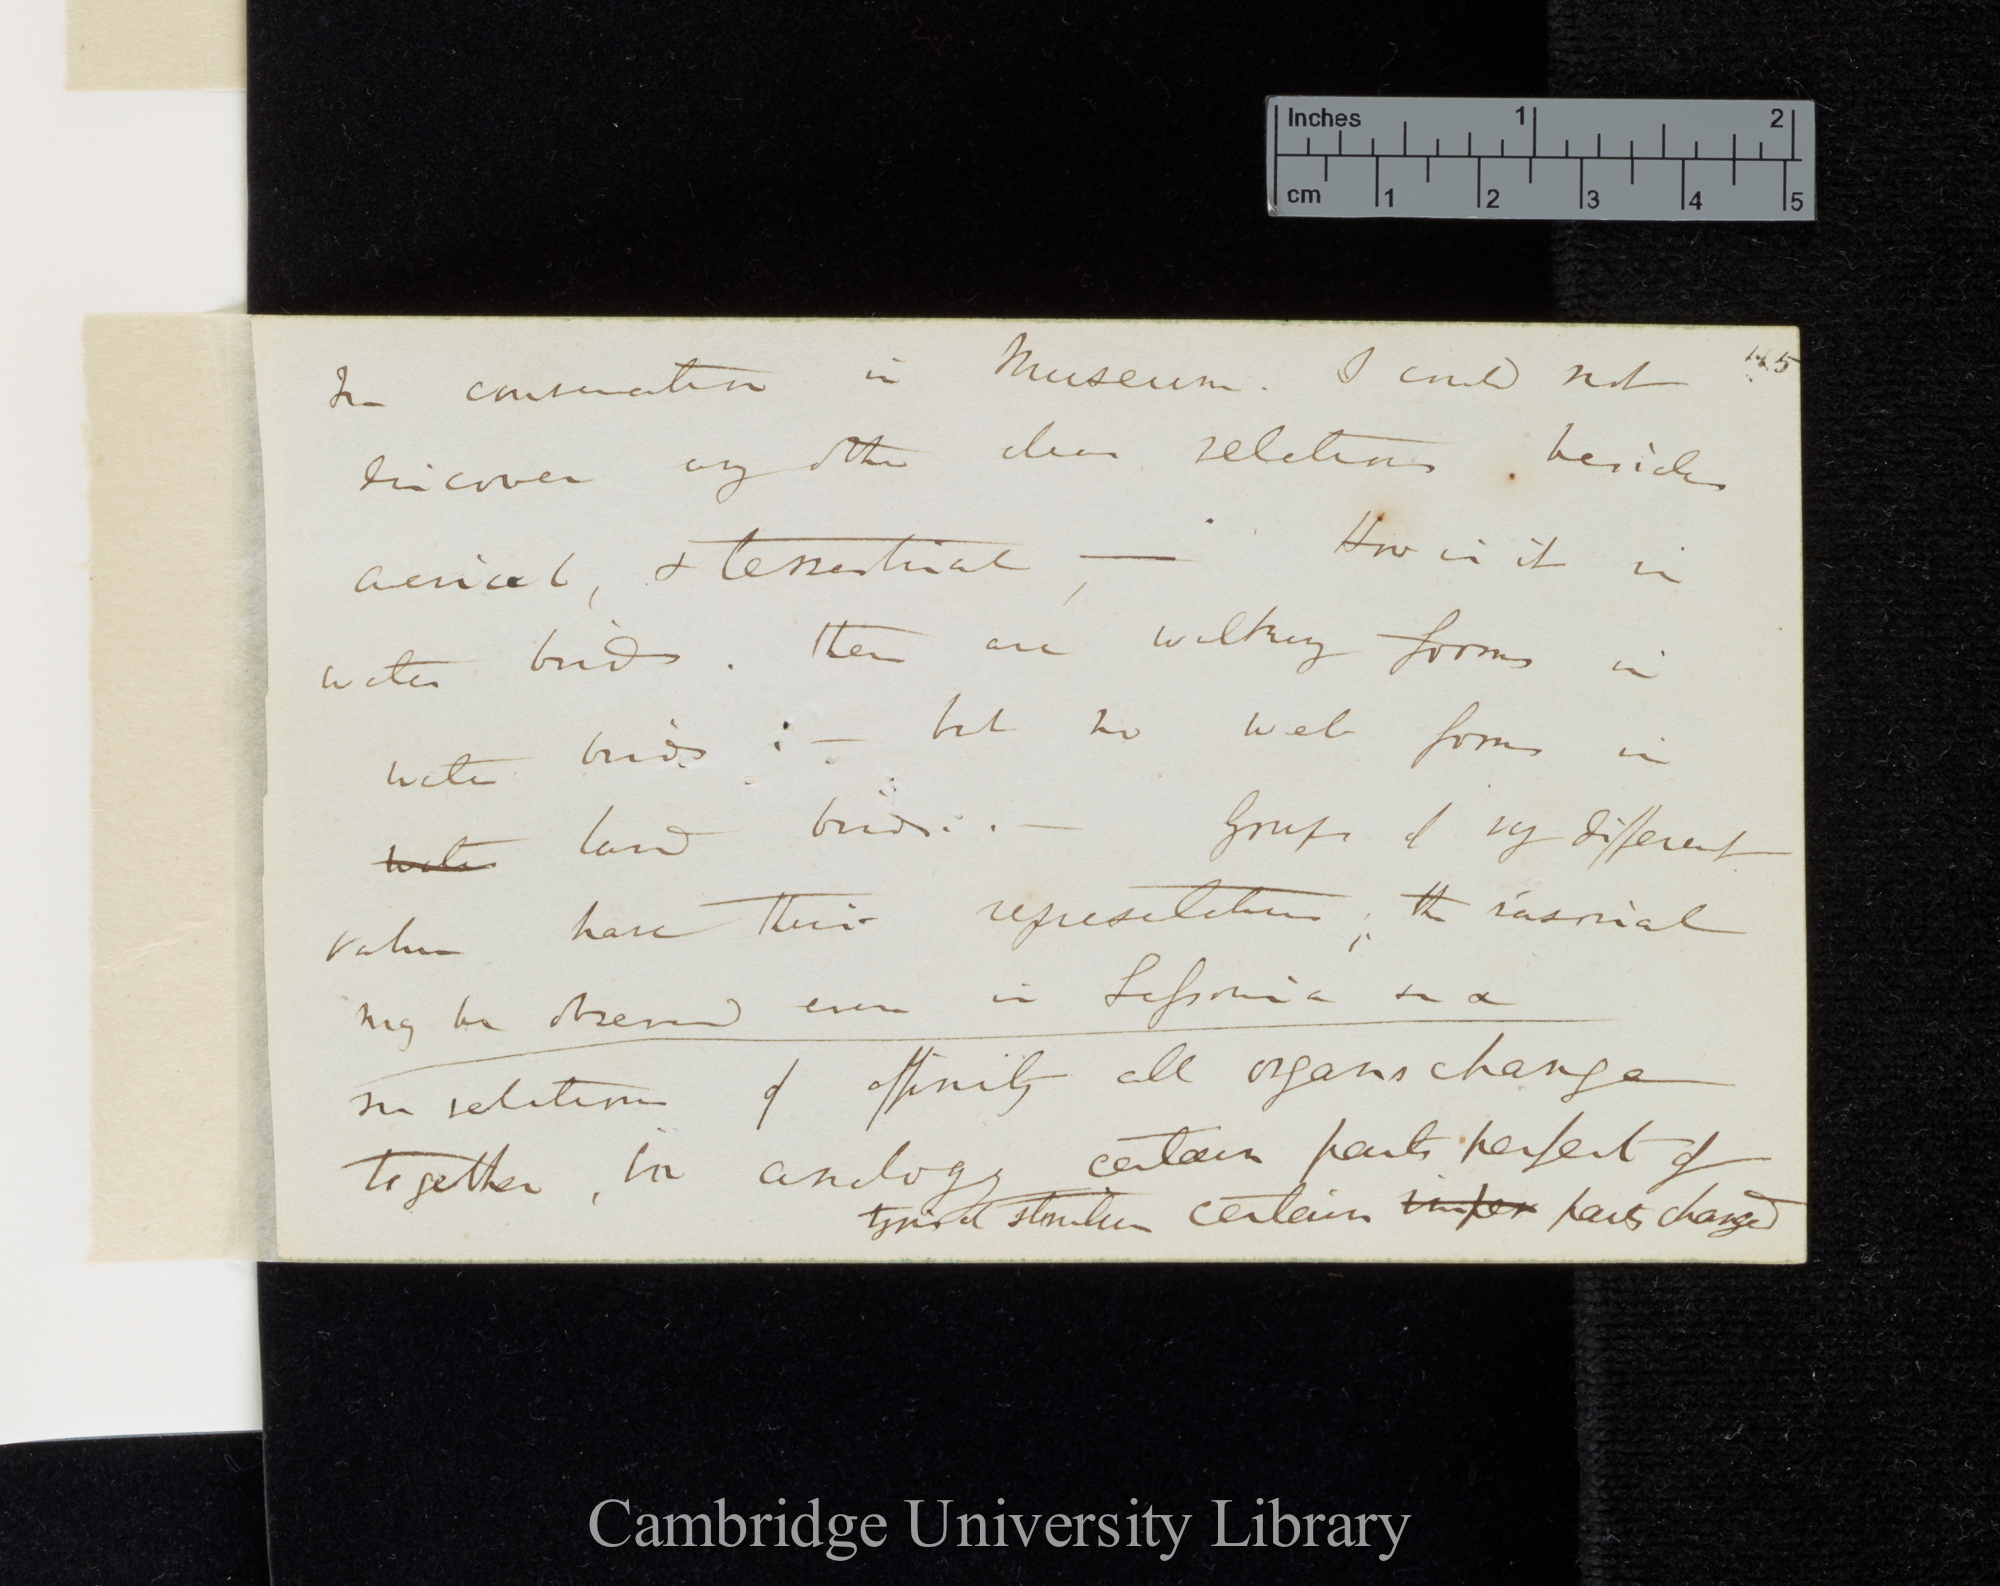 Inches 1 2
cm 1 2 3 4 5
In conversation in Museum. I could not
discover any other clear relations besides
aerial, & terrestrial, — How is it in
water birds. there are walking forms in
water birds :— but no web forms in
water land birds. .— Groups of very different
value have their representations; the rasorial
may be observed even in Lessonia
in relations of affinity all organs change
together, in analogy certain parts perfect of
typical structure certain imper parts changed
Cambridge University Library